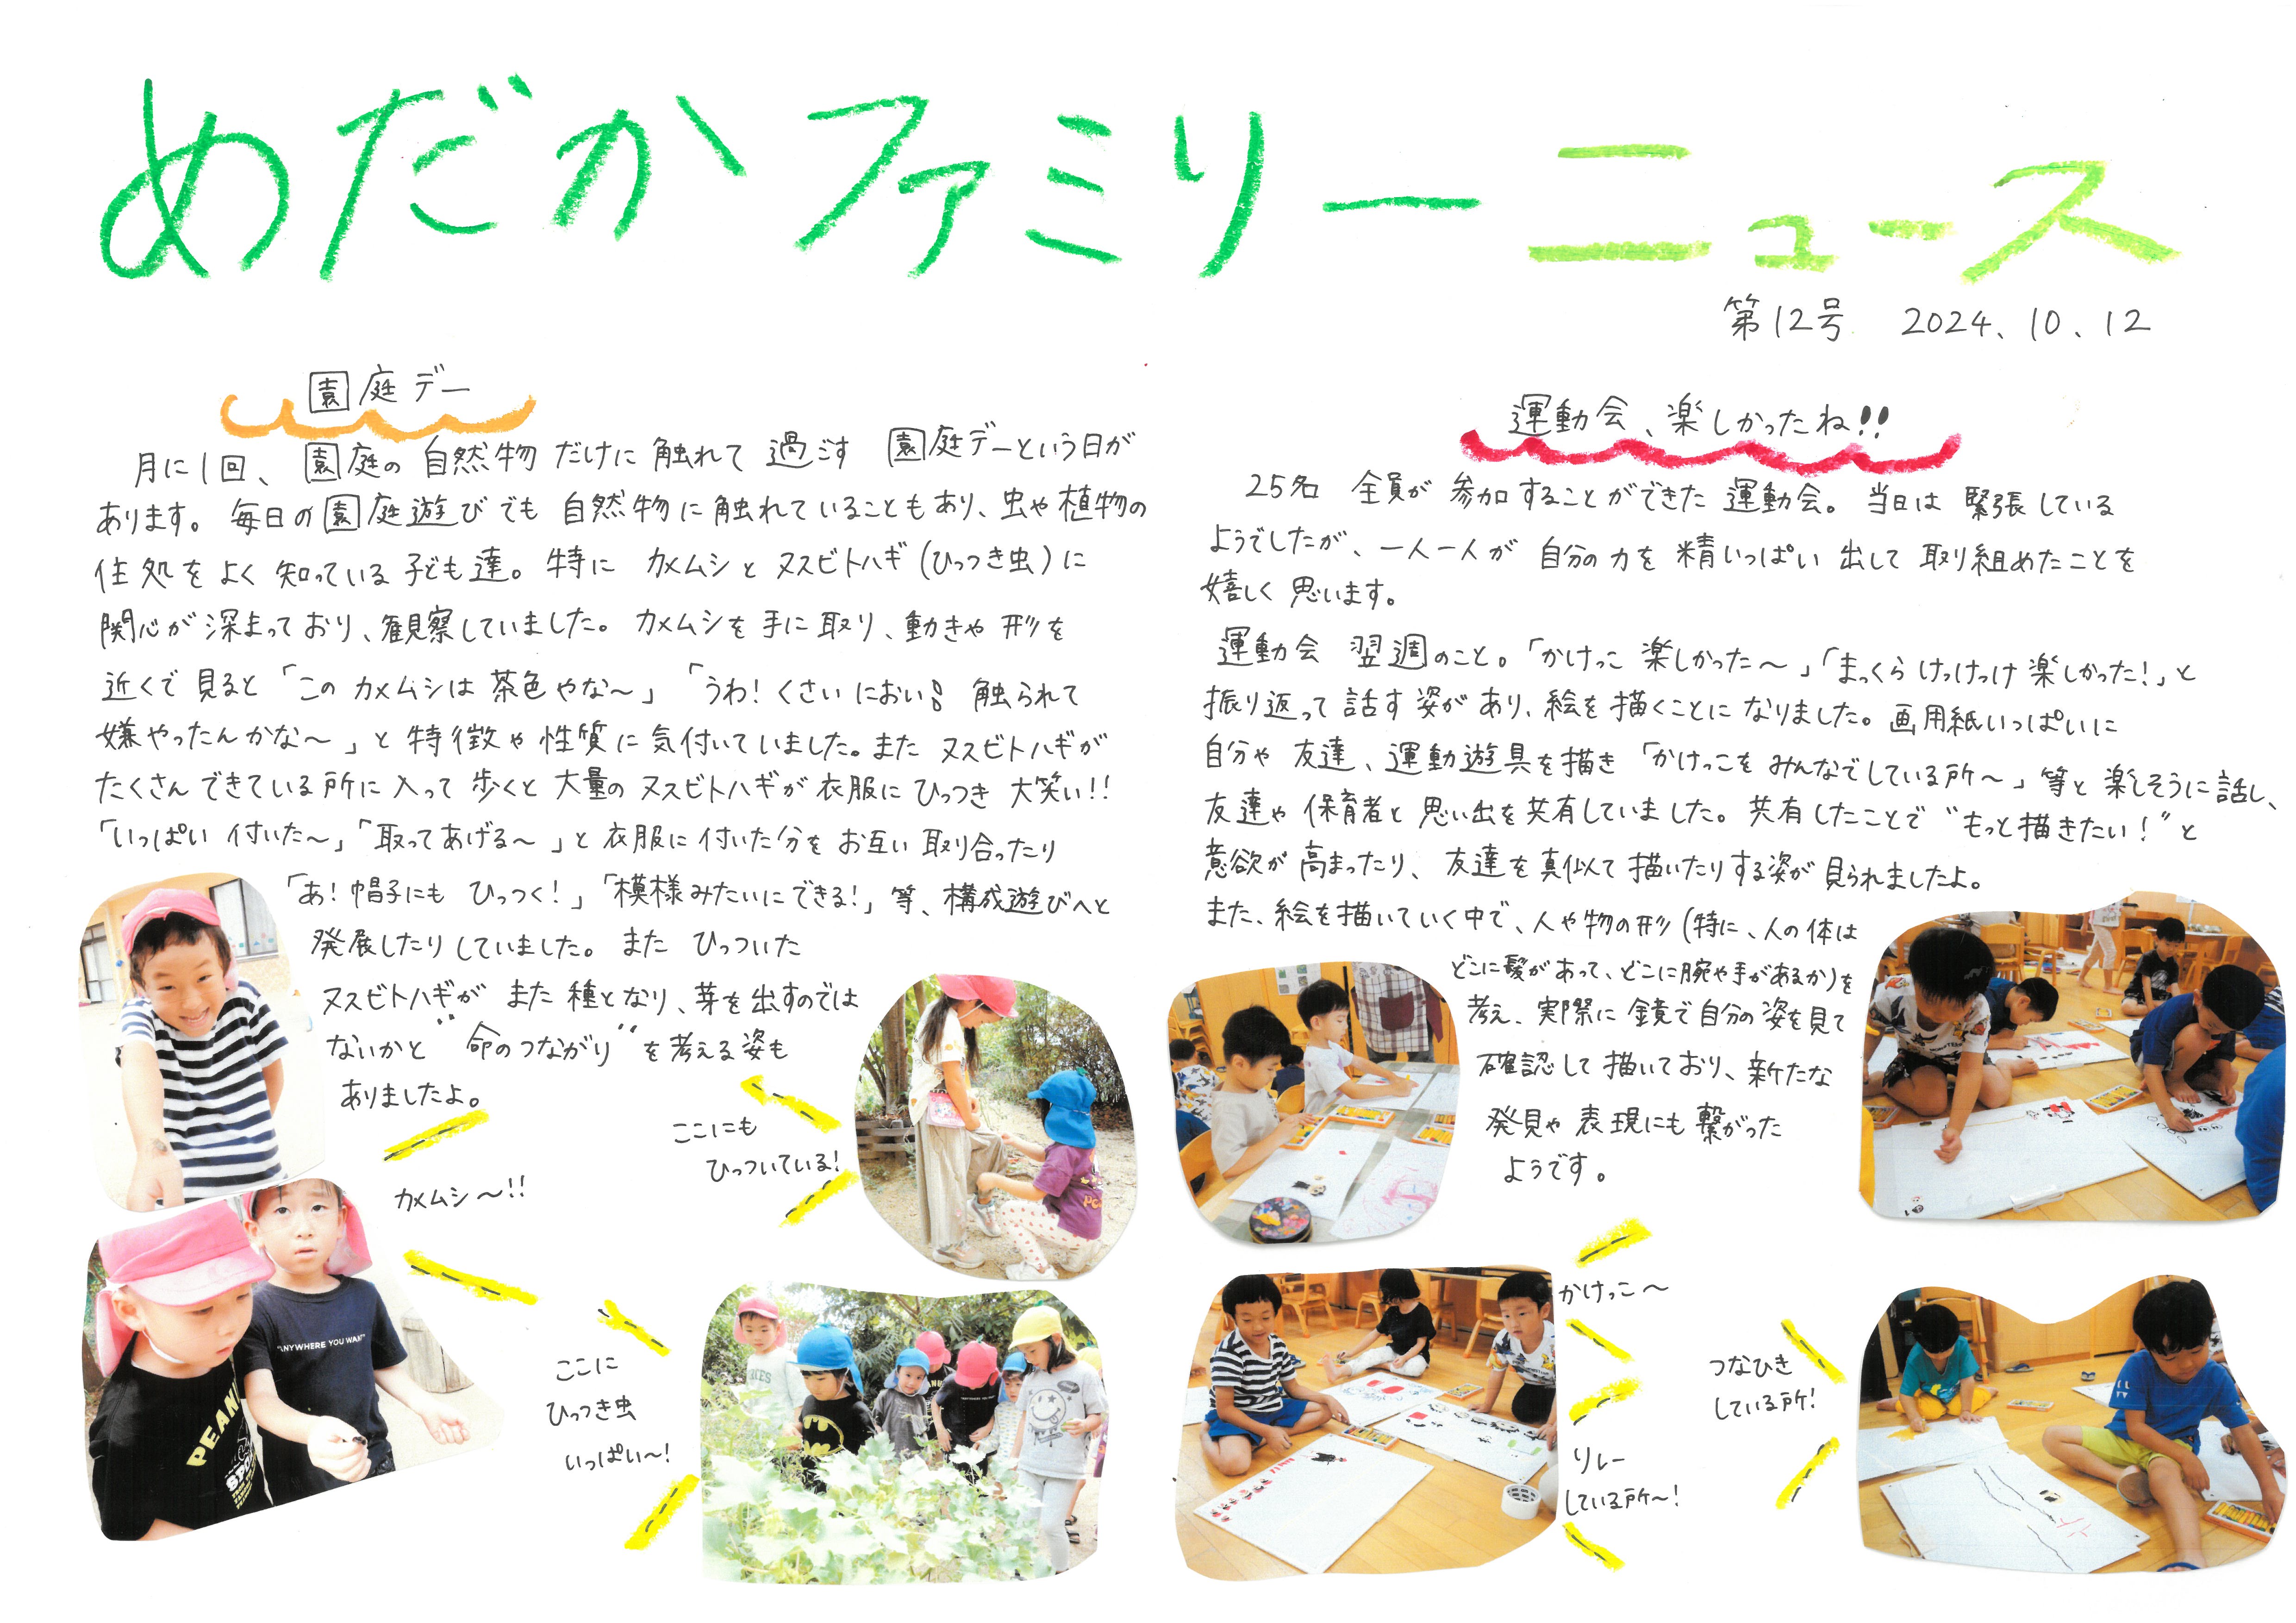 めだかファミリーニュース
第12号 2024.10.12
園庭デー
月に1回、園庭の自然物だけに触れて過ごす 園庭デーという日が
あります。毎日の園庭遊びでも自然物に触れていることもあり、虫や植物の
住処をよく知っている子ども達。特に カメムシとヌスビトハギ(ひっつき虫)に
関心が深まっており、観察していました。カメムシを手に取り、動きや形を
近くで見ると「このカメムシは茶色やな〜」「うわ!くさいにおい!触られて
嫌やったんかな〜」と特徴や性質に気付いていました。またヌスビトハギが
たくさんできている所に入って歩くと大量のヌスビトハギが衣服にひっつき大笑い!!
「いっぱい付いた〜」「取ってあげる〜」と衣服に付いた分をお互い取り合ったり
「あ!帽子にもひっつく!」「模様みたいにできる!」等、構成遊びへと
発展したりしていました。また ひっついた
ヌスビトハギが また種となり、芽を出すのでは
ないかと“命のつながり”を考える姿も
ありましたよ。
カメムシ〜!!
ここにも
ひっついている!
ここに
ひっつき虫
いっぱい〜!
運動会、楽しかったね!!
25名 全員が参加することができた運動会。当日は緊張している
ようでしたが、一人一人が自分の力を精いっぱい出して取り組めたことを
嬉しく思います。
運動会翌週のこと。「かけっこ楽しかった〜」「まっくらけっけっけ楽しかった!」と
振り返って話す姿があり、絵を描くことになりました。画用紙いっぱいに
自分や友達、運動遊具を描き「かけっこをみんなでしている所〜」等と楽しそうに話し、
友達や保育者と思い出を共有していました。共有したことで“もっと描きたい!”と
意欲が高まったり、友達を真似て描いたりする姿が見られましたよ。
また、絵を描いていく中で、人や物の形(特に、人の体は
どこに髪があって、どこに腕や手があるか)を
考え、実際に鏡で自分の姿を見て
確認して描いており、新たな
発見や表現にも繋がった
ようです。
かけっこ〜
リレー
している所〜!
つなひき
している所!
PEAN
SPO
"ANYWHERE YOU WANT"